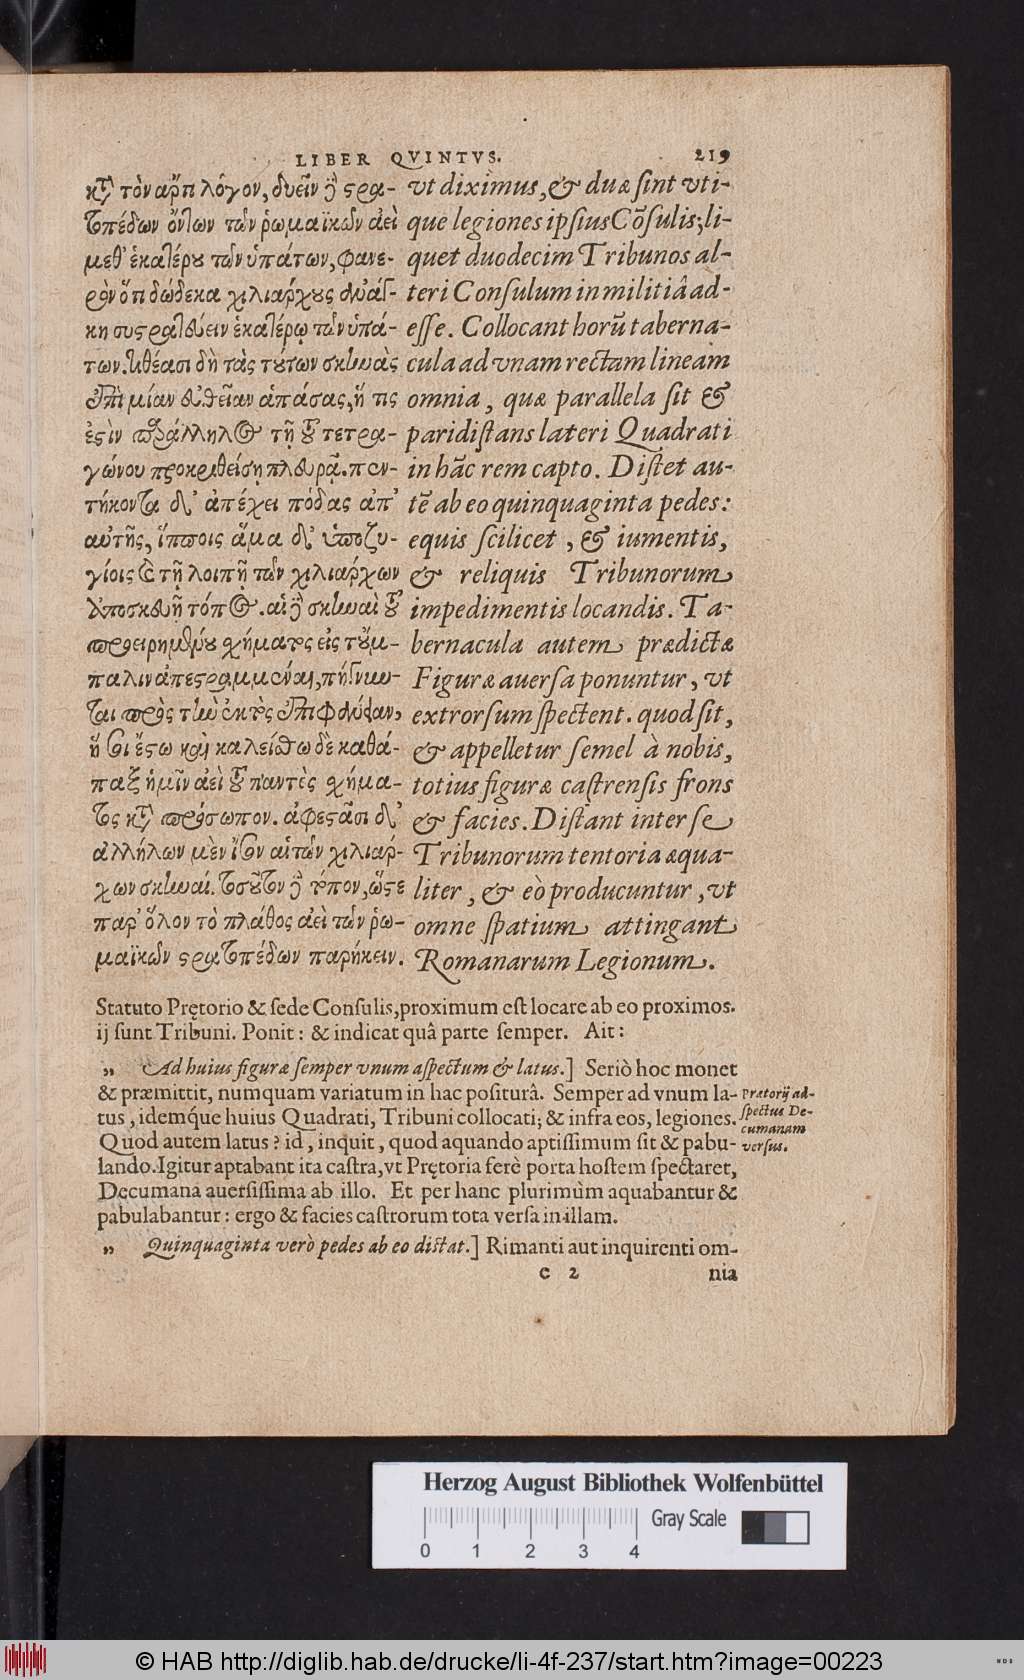 LIBER QVINTVS.
219
κατὰ τὸν ἄρτι λόγον, δυεῖν δὲ στρα-
τοπέδων ὄντων τῶν ῥωμαϊκῶν ἀεὶ
μεθ' ἑκατέρου τῶν ὑπάτων, φανε-
ρὸν ὅτι δώδεκα χιλιάρχους ἀνάγ-
κη συστρατεύειν ἑκατέρῳ τῶν ὑπά-
των. τιθέασι δὴ τὰς τούτων σκηνὰς
ἐπὶ μίαν εὐθεῖαν ἁπάσας, ἥ τις
ἐστὶν παράλληλος τῇ τοῦ τετρα-
γώνου προκριθείσῃ πλευρᾷ. πεν-
τήκοντα δ' ἀπέχει πόδας ἀπ'
αὐτῆς, ἵπποις ἅμα δ' ὑποζυ-
γίοις καὶ τῇ λοιπῇ τῶν χιλιάρχων
ἀποσκευῇ τόπος. αἱ δὲ σκηναὶ τοῦ
προειρημένου σχήματος εἰς τοὔμ-
παλιν ἀπεστραμμέναι, πήγνυν-
ται πρὸς τὴν ἐκτὸς ἐπιφάνειαν,
ἥ τοι ἔστω καὶ καλείσθω δὲ καθά-
παξ ἡμῖν ἀεὶ τοῦ παντὸς σχήμα-
τος κατὰ πρόσωπον. ἀφεστᾶσι δ'
ἀλλήλων μὲν ἴσον αἱ τῶν χιλιάρ-
χων σκηναί. τοσοῦτον δὲ τόπον, ὥστε
παρ' ὅλον τὸ πλάθος ἀεὶ τῶν ῥω-
μαϊκῶν στρατοπέδων παρήκειν.
vt diximus, & duæ sint vti-
que legiones ipsius Cōsulis; li-
quet duodecim Tribunos al-
teri Consulum in militiâ ad-
esse. Collocant horū taberna-
cula ad vnam rectam lineam
omnia, quæ parallela sit &
paridistans lateri Quadrati
in hāc rem capto. Distet au-
tē ab eo quinquaginta pedes:
equis scilicet, & iumentis,
& reliquis Tribunorum
impedimentis locandis. Ta-
bernacula autem prædictæ
Figuræ auersa ponuntur, vt
extrorsum spectent. quod sit,
& appelletur semel à nobis,
totius figuræ castrensis frons
& facies. Distant inter se
Tribunorum tentoria æqua-
liter, & eò producuntur, vt
omne spatium attingant
Romanarum Legionum.
Statuto Prętorio & sede Consulis, proximum est locare ab eo proximos.
ij sunt Tribuni. Ponit: & indicat quâ parte semper. Ait:
„ Ad huius figuræ semper vnum aspectum & latus.] Seriò hoc monet
& præmittit, numquam variatum in hac positurâ. Semper ad vnum la-
tus, idemq́ue huius Quadrati, Tribuni collocati; & infra eos, legiones.
Quod autem latus? id, inquit, quod aquando aptissimum sit & pabu-
lando. Igitur aptabant ita castra, vt Prętoria ferè porta hostem spectaret,
Decumana auersissima ab illo. Et per hanc plurimùm aquabantur &
pabulabantur: ergo & facies castrorum tota versa in illam.
Prætorij ad-
spectus De-
cumanam
versus.
„ Quinquaginta verò pedes ab eo distat.] Rimanti aut inquirenti om-
c 2
nia
Herzog August Bibliothek Wolfenbüttel
Gray Scale
0 1 2 3 4
© HAB http://diglib.hab.de/drucke/li-4f-237/start.htm?image=00223